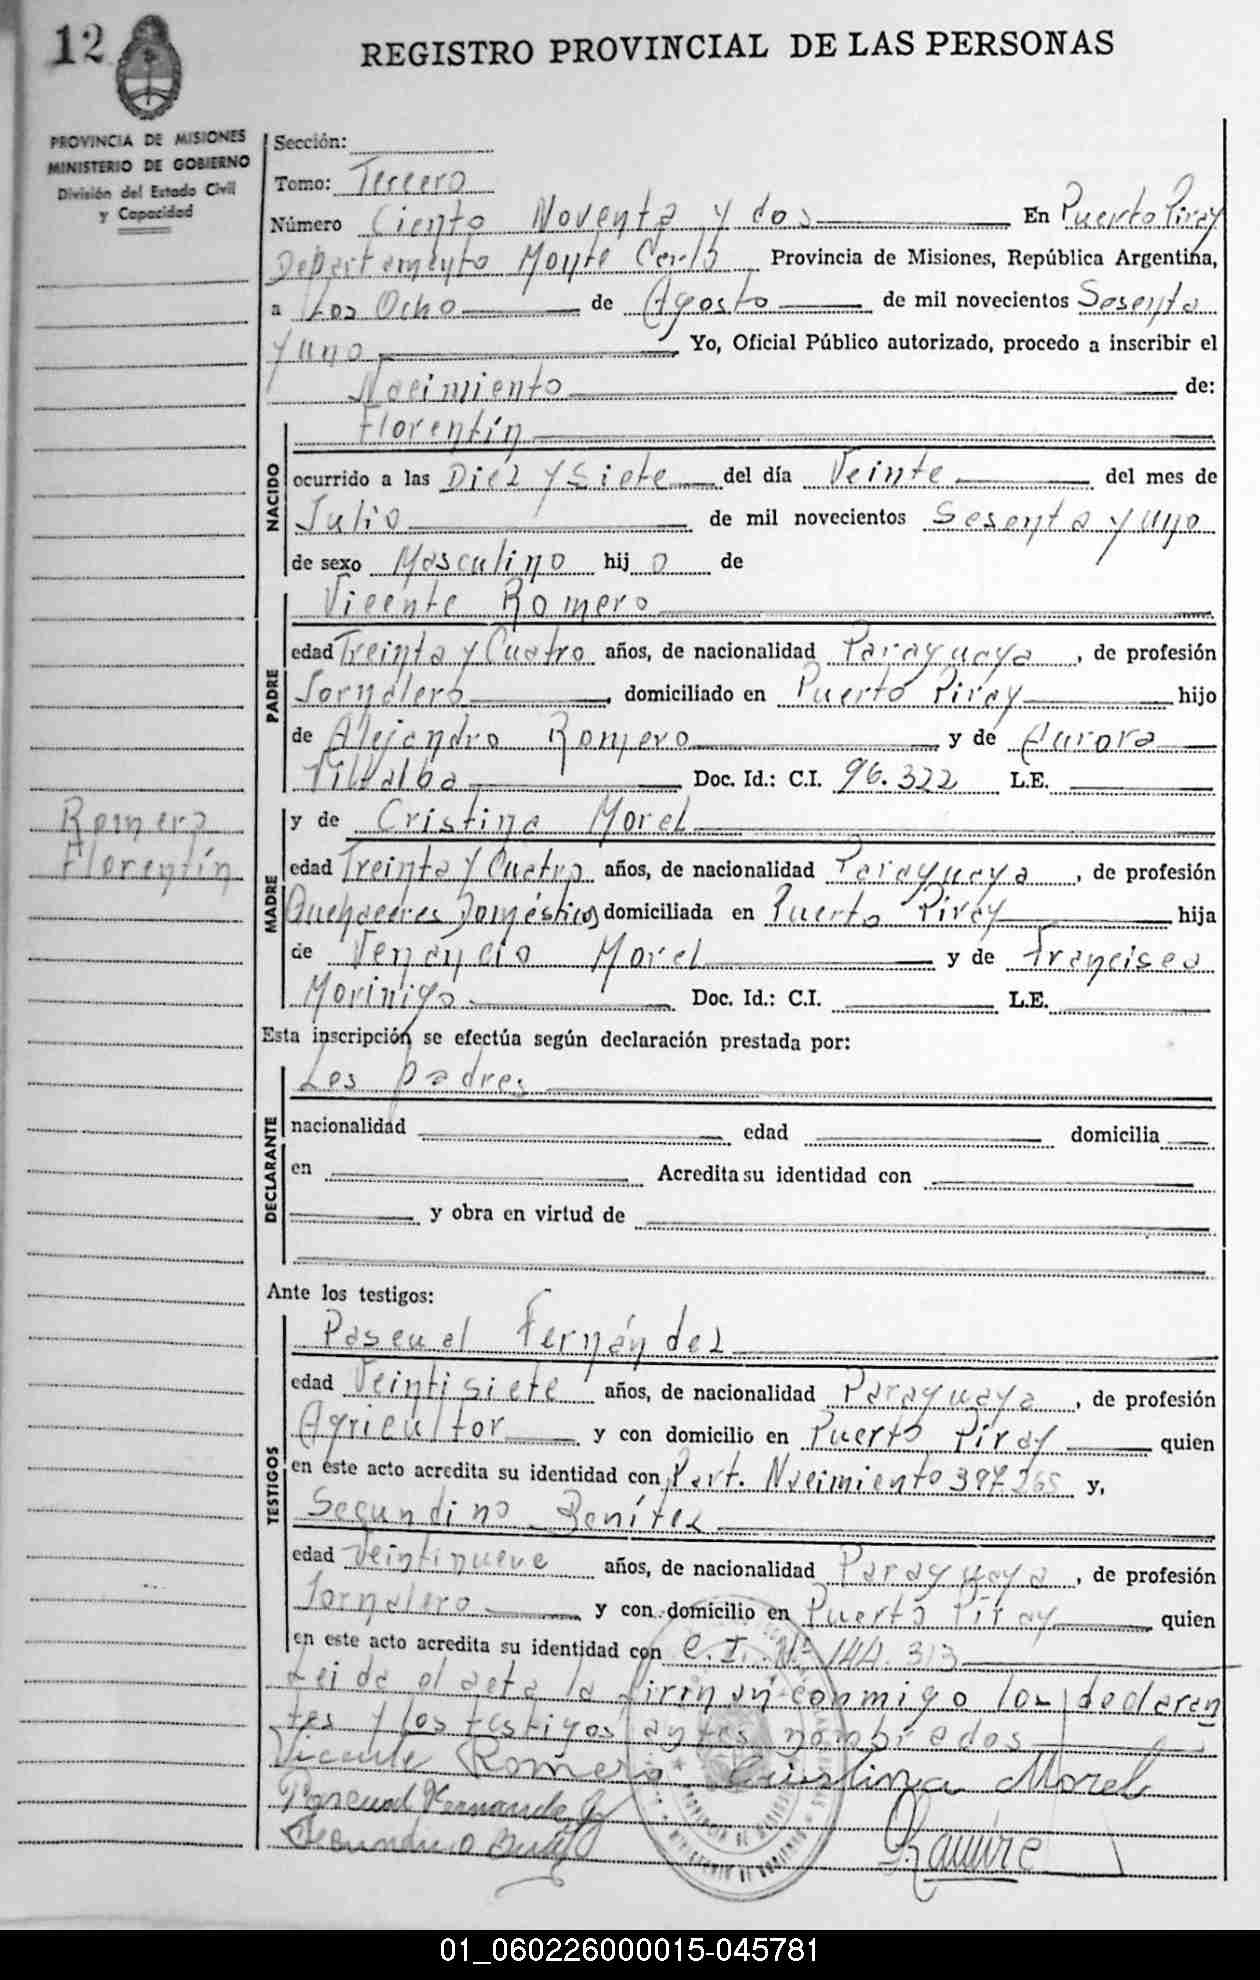 12
REGISTRO PROVINCIAL DE LAS PERSONAS
PROVINCIA DE MISIONES
MINISTERIO DE GOBIERNO
División del Estado Civil
y Capacidad
Sección:
Tomo: Tercero
Número Ciento Noventa y dos En Puerto Piray
Departamento Monte Carlo Provincia de Misiones, República Argentina,
a Los Ocho de Agosto de mil novecientos Sesenta
y uno Yo, Oficial Público autorizado, procedo a inscribir el
Nacimiento de:
NACIDO
Florentín
ocurrido a las Diez y Siete del día Veinte del mes de
Julio de mil novecientos Sesenta y uno
de sexo Masculino hij o de
PADRE
Vicente Romero
edad Treinta y Cuatro años, de nacionalidad Paraguaya, de profesión
Jornalero, domiciliado en Puerto Piray hijo
de Alejandro Romero y de Aurora
Villalba Doc. Id.: C.I. 96.322 L.E.
Romero
Florentín
MADRE
y de Cristina Morel
edad Treinta y Cuatro años, de nacionalidad Paraguaya, de profesión
Quehaceres Domésticos domiciliada en Puerto Piray hija
de Venancio Morel y de Francisca
Morinigo Doc. Id.: C.I. L.E.
Esta inscripción se efectúa según declaración prestada por:
DECLARANTE
Los padres
nacionalidad edad domicilia
en Acredita su identidad con
y obra en virtud de
Ante los testigos:
TESTIGOS
Pascual Fernández
edad Veintisiete años, de nacionalidad Paraguaya, de profesión
Agricultor y con domicilio en Puerto Piray quien
en este acto acredita su identidad con Part. Nacimiento 397.265 y,
Segundino Benítez
edad Veintinueve años, de nacionalidad Paraguaya, de profesión
Jornalero y con domicilio en Puerto Piray quien
en este acto acredita su identidad con C.I. Nº 144.313
Leida el acta la firman conmigo los declaran
tes y los testigos antes nombrados
Vicente Romero Cristina Morel
Pascual Fernandez
Ramire
01_060226000015-045781